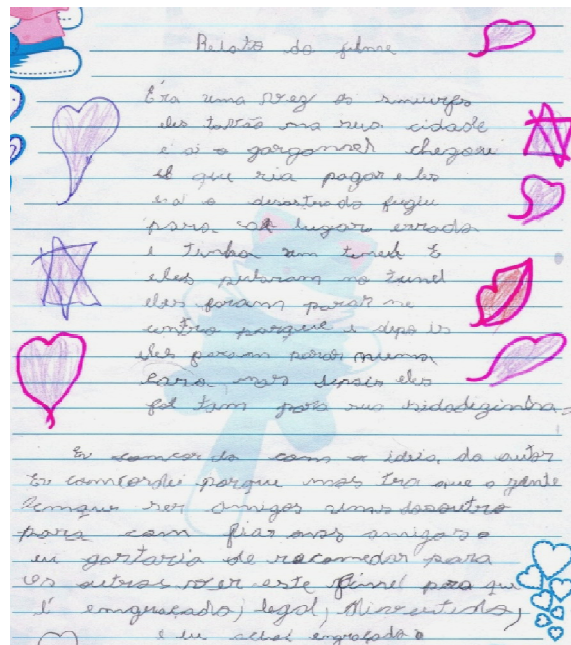 Relato do filme
Éra uma vez os smurfs
eles tavão na sua cidade
e ai o garganeh chegou
el que ria pagar eles
e o desastrado fugiu
para lugar errado
e tinha um tunel E
eles pularam no tunel
eles foram parar no
entro parque e depo is
eles param numa
casa mas depois eles
fol tam para sua sidadezinha.
Eu comcor do com a ideia, do autor
Eu comcordei porque mos tra que a gente
temque ser amigos unsdosoutro
para com fiar nos amigos.
eu gostaria de racomedar para
os outros ver este finel para que
é emgraçado, legal,
e eu achei engraçado.